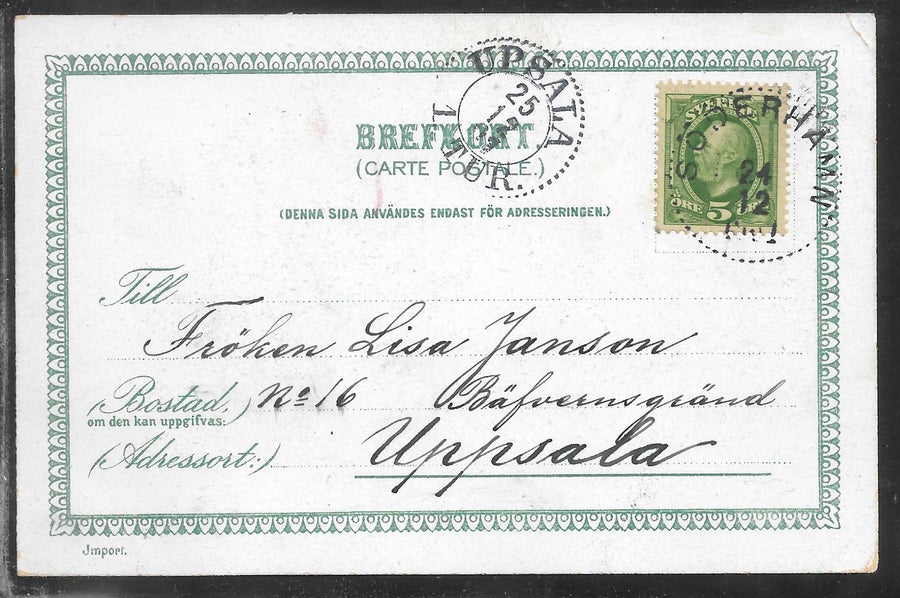 UPSALA
25
12
1 TUR.
BREFKORT.
(CARTE POSTALE.)
(DENNA SIDA ANVÄNDES ENDAST FÖR ADRESSERINGEN.)
SVERIGE
ÖRE 5
SÖDERHAMN
24
12
Till
Fröken Lisa Janson
(Bostad,) No 16 Bäfvernsgränd
om den kan uppgifvas:
(Adressort:) Uppsala
Import.